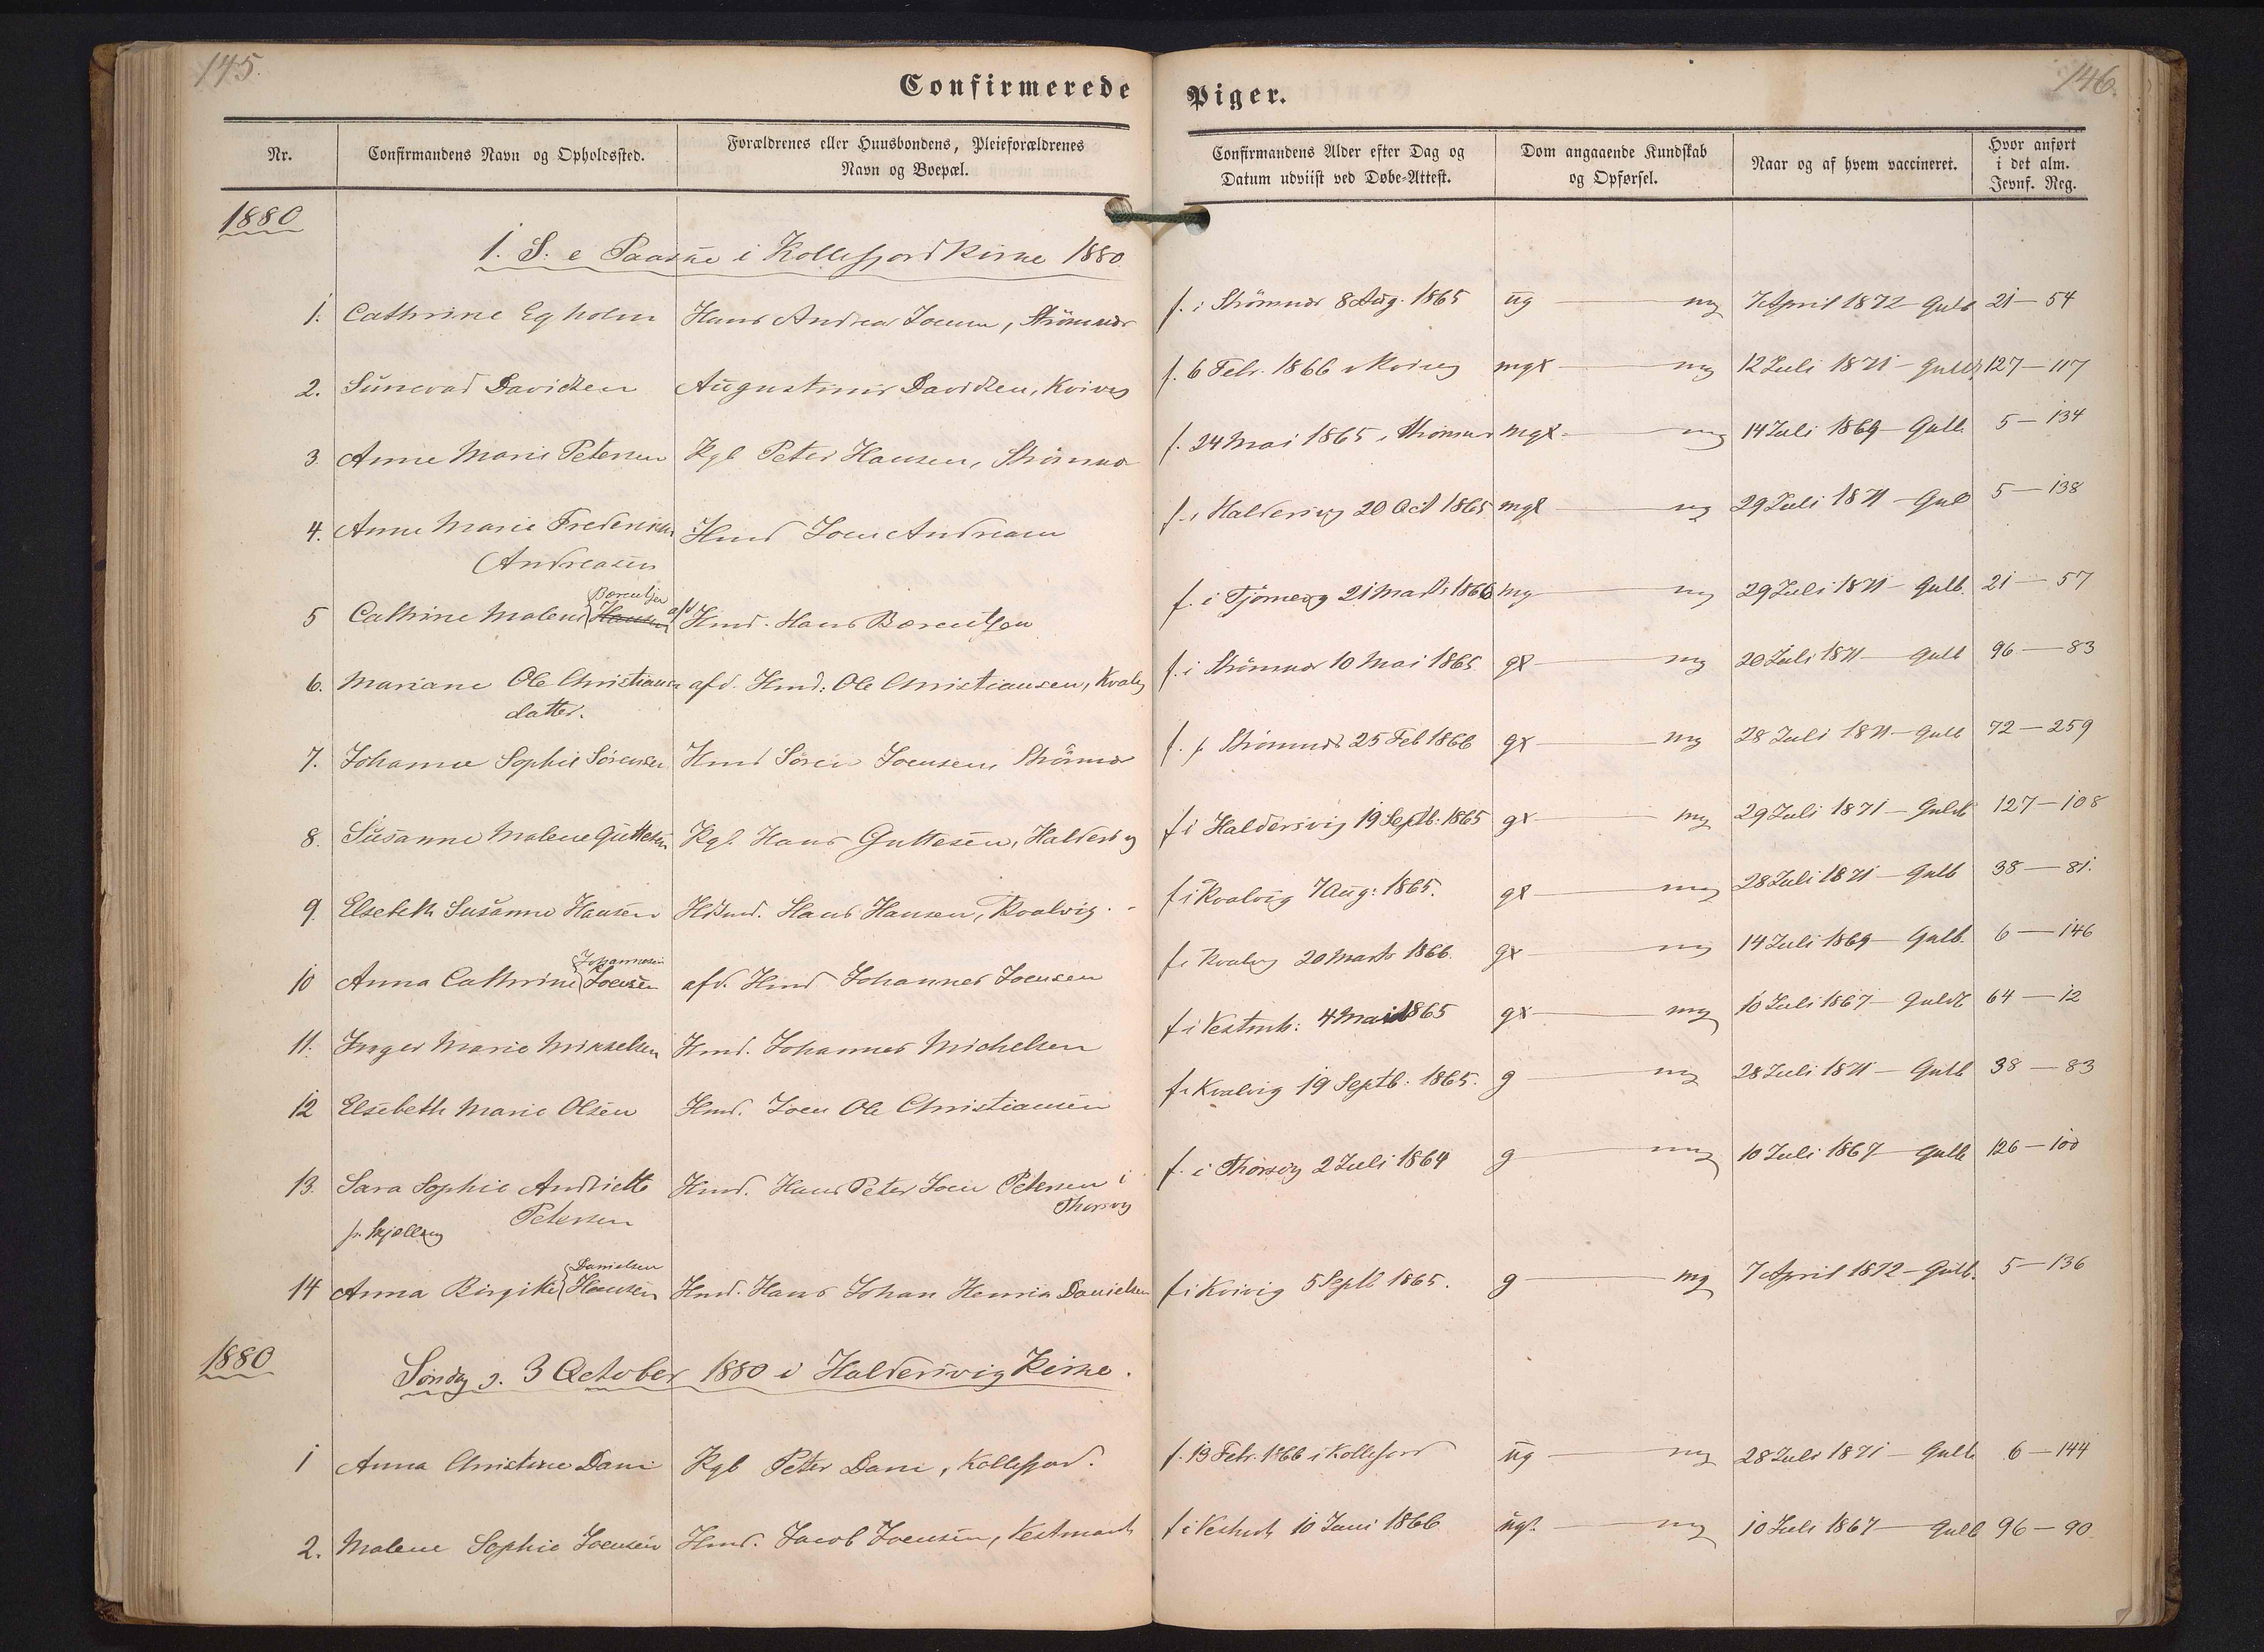 145.
146.
Confirmerede Piger.
Nr. Confirmandens Navn og Opholdssted. Forældrenes eller Huusbondens, Pleieforældrenes Navn og Boepæl. Confirmandens Alder efter Dag og Datum udviist ved Døbe-Attest. Dom angaaende Kundskab og Opførsel. Naar og af hvem vaccineret. Hvor anført i det alm. Jevnf. Reg.
1880
1. S. e Paaske i Kollefjord Kirke 1880
1. Cathrine Egholm Hans Andrea Joensen, Strömnæs f. i Strömnæs 8 Aug. 1865 ug mg 7 April 1872 - Gulb 21 - 54
2. Sunevad Davidsen Augustinus Davidsen, Kvivig f. 6 Febr. 1866 i Kvivig mgx mg 12 Juli 1871 - Guldb 127 - 117
3. Anne Marie Petersen Kgb Peter Hansen, Strömnæs f. 24 Mai 1865 i Strömnæs mgx mg 14 Juli 1869 - Gulb 5 - 134
4. Anne Marie Frederikke Hmd Joen Andreasen f. i Haldersvig 20 Oct 1865 mgx mg 29 Juli 1871 - Gulb 5 - 138
Andreasen
Berentsen
5 Cathrine Malene Hansen afd Hmd. Hans Berentsen f. i Tjörnevig 21 Marts 1866 mg mg 29 Juli 1871 - Gulb. 21 - 57
6. Mariane Ole Christiansen afd. Hmd. Ole Christiansen, Kvalvig f. i Strömnæs 10 Mai 1865 gx mg 20 Juli 1871 - Gulb 96 - 83
datter.
7. Johanne Sophie Sörensen Hmd Sören Joensen, Strömnæs f. i Strömnæs 25 Feb 1866 gx mg 28 Juli 1871 - Gulb 72 - 259
8. Susanne Malene Guttesen Kgb. Hans Guttesen, Haldersvig f i Haldersvig 19 Septb: 1865 gx mg 29 Juli 1871 - Guldb 127 - 108
9. Elsebeth Susanne Hansen Hmd. Hans Hansen, Kvalvig. f i Kvalvig 7 Aug: 1865. gx mg 28 Juli 1871 - Gulb 38 - 81.
Johannesen
10 Anna Cathrine Joensen afd. Hmd Johannes Joensen f i Kvalvig 20 Marts 1866. gx mg 14 Juli 1869 - Gulb. 6 - 146
11. Inger Marie Mikkelsen Hmd. Johannes Michelsen f i Vestmh: 4 Mai 1865 gx mg 10 Juli 1867 - Guldb 64 - 12
12 Elsebeth Marie Olsen Hmd. Joen Ole Christiansen f i Kvalvig 19 Septb: 1865. g mg 28 Juli 1871 - Gulb 38 - 83
13. Sara Sophie Andriette Hmd. Hans Peter Joen Petersen i f. i Thorsvig 2 Juli 1864 g mg 10 Juli 1867 - Gulb 126 - 100
Petersen Thorsvig
Danielsen
14 Anna Birgithe Hansen Hmd. Hans Johan Henrik Danielsen f i Kvivig 5 Septb 1865. g mg 7 April 1872 - Gulb. 5 - 136
1880
Söndag d. 3 October 1880 i Haldersvig Kirke.
1 Anna Christine Dam Kgb Petter Dam, Kollefjord. f. 13 Febr. 1866 i Kollefjord ug mg 28 Juli 1871 - Gulb 6 - 144
2. Malene Sophie Joensen Hmd. Jacob Joensen, Vestmanh f i Vestmh 10 Juni 1866 ugx mg 10 Juli 1867 - Gulb 96 - 90